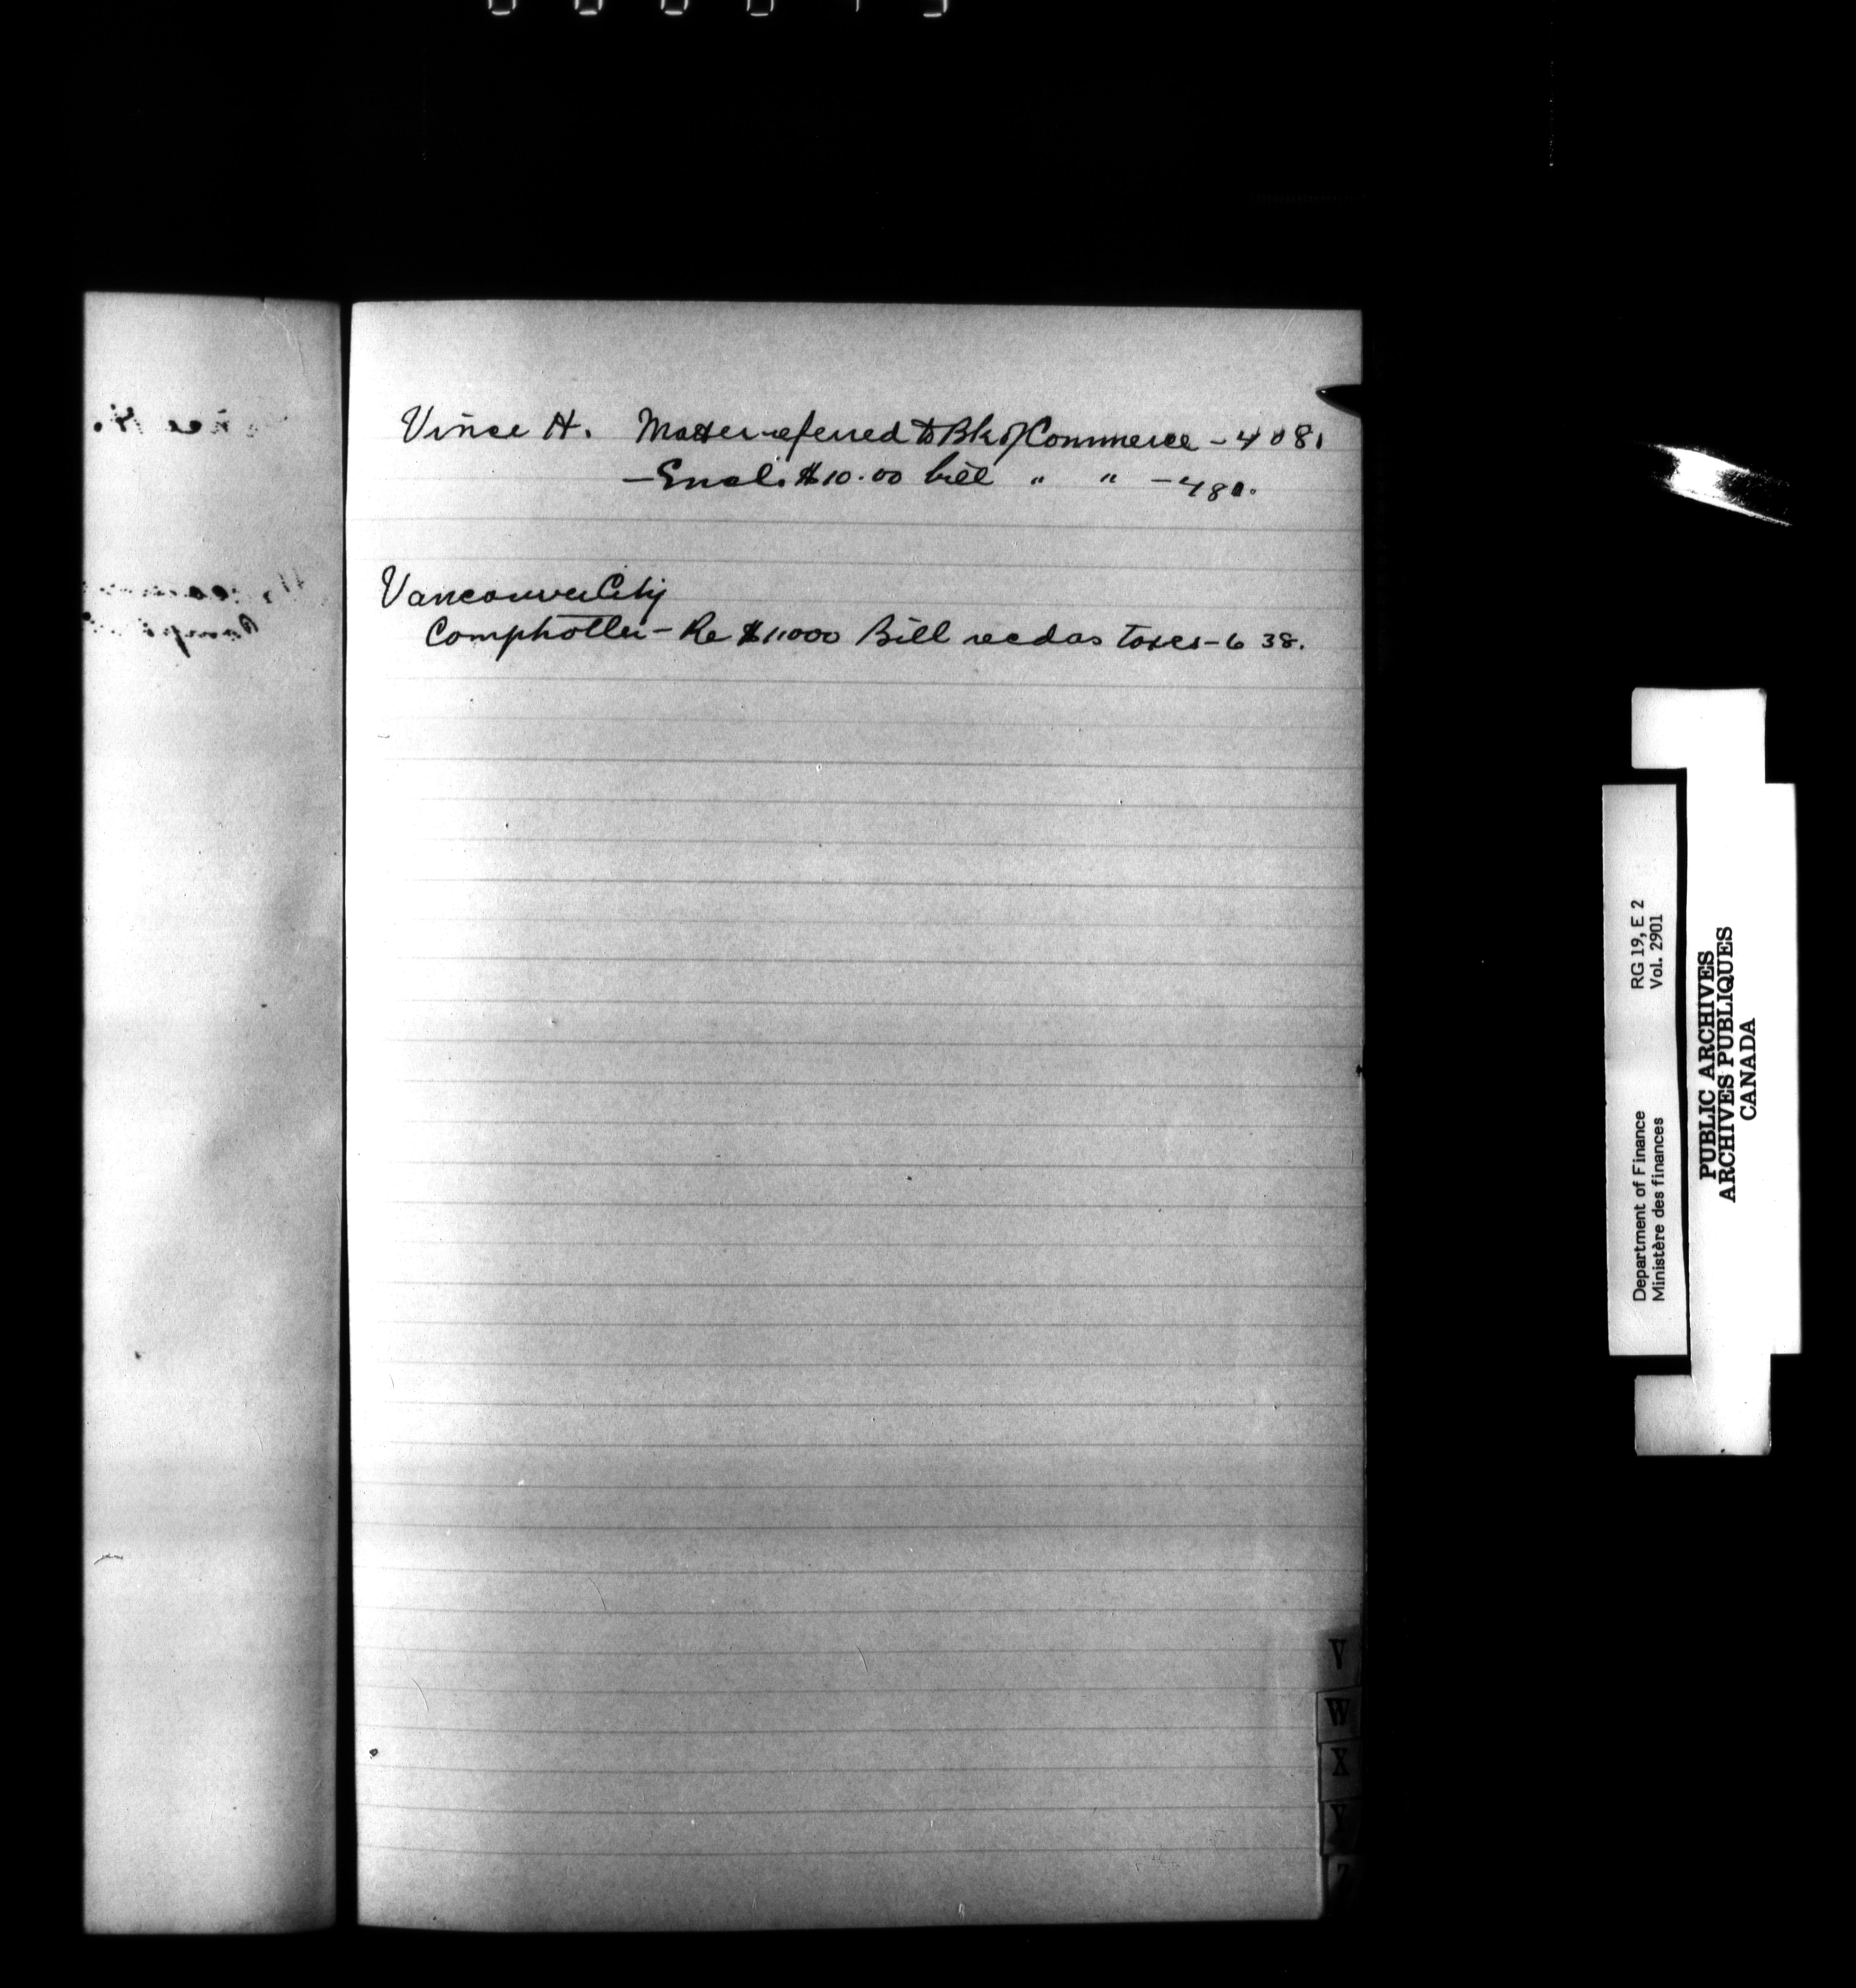 Vince H. Matter referred to Bk of Commerce - 408.
- Encl. $10.00 bill " " - 480.
Vancouver City
Comptroller - Re $1000 Bill recd as taxes - 638.
V
W
X
Y
Z
Department of Finance RG 19, E 2
Ministère des finances Vol. 2901
PUBLIC ARCHIVES
ARCHIVES PUBLIQUES
CANADA